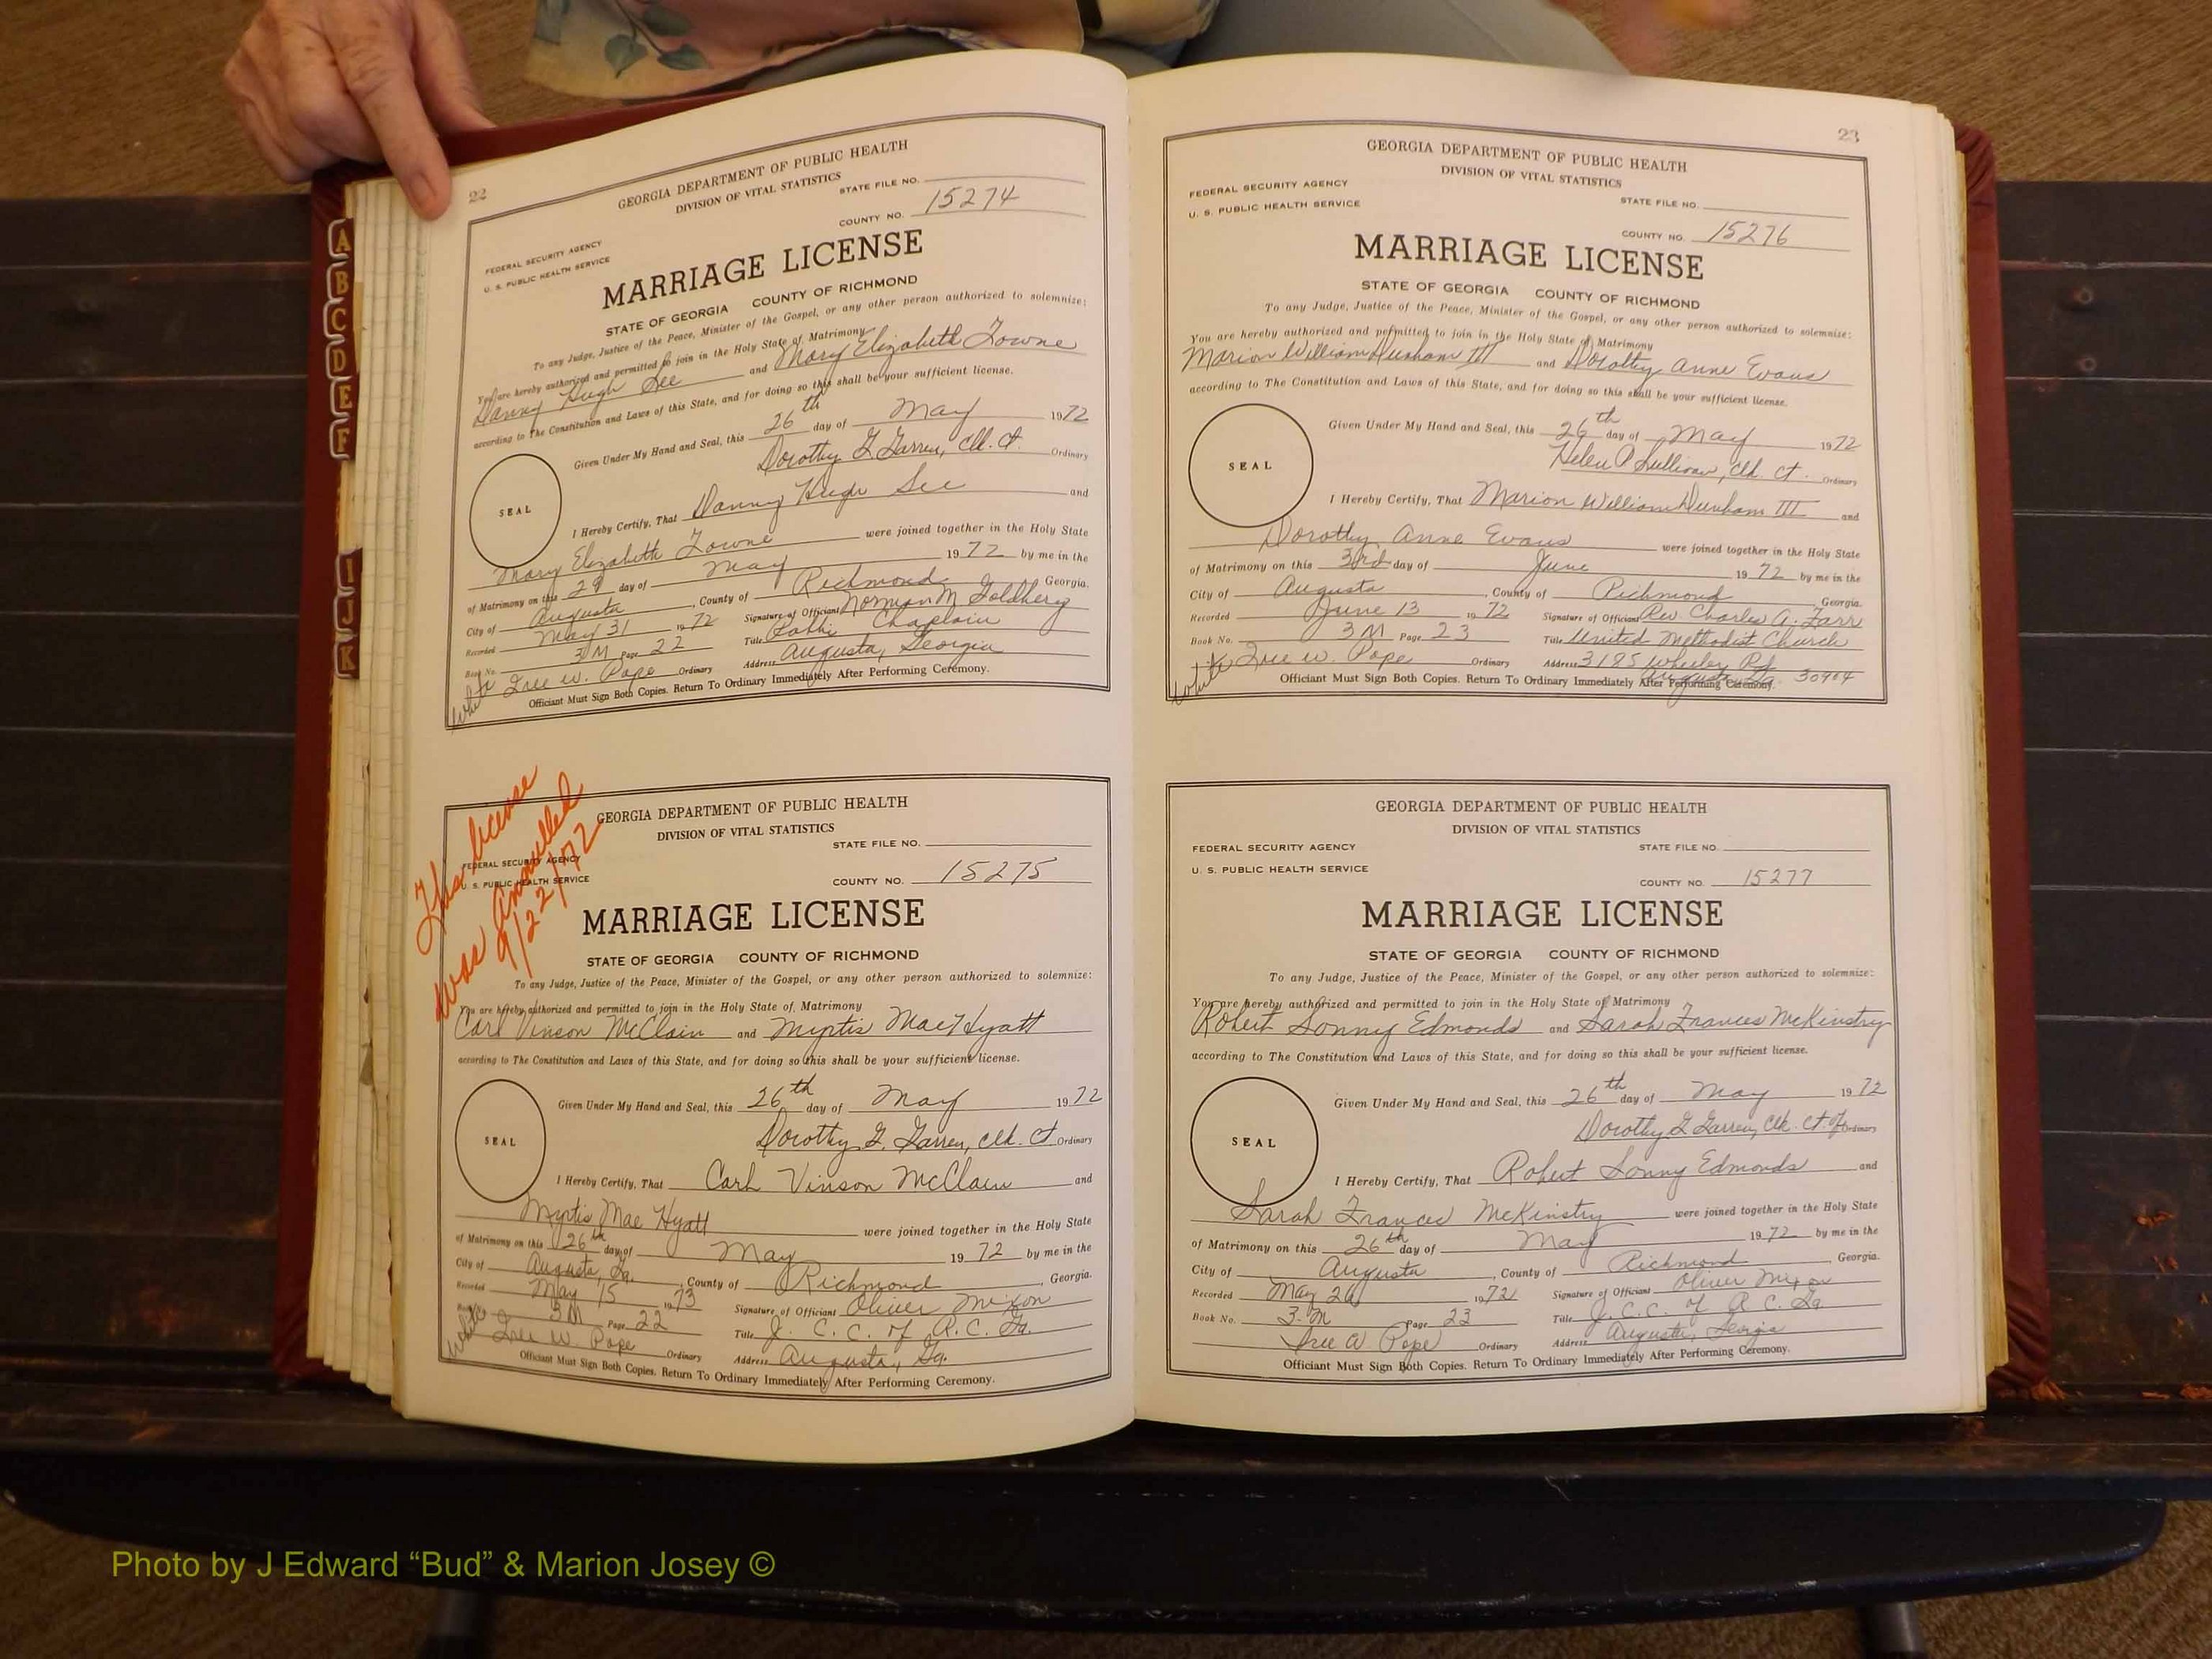 22
GEORGIA DEPARTMENT OF PUBLIC HEALTH
DIVISION OF VITAL STATISTICS
STATE FILE NO.
FEDERAL SECURITY AGENCY
U. S. PUBLIC HEALTH SERVICE
COUNTY NO. 15274
MARRIAGE LICENSE
STATE OF GEORGIA COUNTY OF RICHMOND
To any Judge, Justice of the Peace, Minister of the Gospel, or any other person authorized to solemnize:
You are hereby authorized and permitted to join in the Holy State of Matrimony
Danny Hugh See and Mary Elizabeth Towne
according to The Constitution and Laws of this State, and for doing so this shall be your sufficient license.
Given Under My Hand and Seal, this 26th day of May 1972
Dorothy G. Garren, Clk. Ct. Ordinary
SEAL
I Hereby Certify, That Danny Hugh See and
Mary Elizabeth Towne were joined together in the Holy State
of Matrimony on this 29 day of May 1972 by me in the
City of Augusta, County of Richmond Georgia.
Recorded May 31 1972 Signature of Officiant Norman M Goldberg
Book No. 3 M Page 22 Title Rabbi Chaplain
White Iree W. Pope Ordinary Address Augusta, Georgia
Officiant Must Sign Both Copies. Return To Ordinary Immediately After Performing Ceremony.
This license
was annulled
9/22/72
GEORGIA DEPARTMENT OF PUBLIC HEALTH
DIVISION OF VITAL STATISTICS
STATE FILE NO.
FEDERAL SECURITY AGENCY
U. S. PUBLIC HEALTH SERVICE
COUNTY NO. 15275
MARRIAGE LICENSE
STATE OF GEORGIA COUNTY OF RICHMOND
To any Judge, Justice of the Peace, Minister of the Gospel, or any other person authorized to solemnize:
You are hereby authorized and permitted to join in the Holy State of Matrimony
Carl Vinson McClain and Myrtis Mae Hyatt
according to The Constitution and Laws of this State, and for doing so this shall be your sufficient license.
Given Under My Hand and Seal, this 26th day of May 1972
Dorothy G. Garren, Clk. Ct. Ordinary
SEAL
I Hereby Certify, That Carl Vinson McClain and
Myrtis Mae Hyatt were joined together in the Holy State
of Matrimony on this 26th day of May 1972 by me in the
City of Augusta, Ga., County of Richmond, Georgia.
Recorded May 15 1973 Signature of Officiant Oliver Mixon
Book No. 3M Page 22 Title J. C. C. of R. C. Ga.
White Iree W. Pope Ordinary Address Augusta, Ga.
Officiant Must Sign Both Copies. Return To Ordinary Immediately After Performing Ceremony.
23
GEORGIA DEPARTMENT OF PUBLIC HEALTH
DIVISION OF VITAL STATISTICS
FEDERAL SECURITY AGENCY
U. S. PUBLIC HEALTH SERVICE
STATE FILE NO.
COUNTY NO. 15276
MARRIAGE LICENSE
STATE OF GEORGIA COUNTY OF RICHMOND
To any Judge, Justice of the Peace, Minister of the Gospel, or any other person authorized to solemnize:
You are hereby authorized and permitted to join in the Holy State of Matrimony
Marion William Durham III and Dorothy Anne Evans
according to The Constitution and Laws of this State, and for doing so this shall be your sufficient license.
Given Under My Hand and Seal, this 26th day of May 1972
Helen P Sullivan, Clk. Ct. Ordinary
SEAL
I Hereby Certify, That Marion William Durham III and
Dorothy Anne Evans were joined together in the Holy State
of Matrimony on this 3rd day of June 1972 by me in the
City of Augusta, County of Richmond Georgia.
Recorded June 13 1972 Signature of Officiant Rev Charles A. Farr
Book No. 3 M Page 23 Title United Methodist Church
White Iree W. Pope Ordinary Address 3185 Wheeler Rd
Augusta, Ga. 30904
Officiant Must Sign Both Copies. Return To Ordinary Immediately After Performing Ceremony.
GEORGIA DEPARTMENT OF PUBLIC HEALTH
DIVISION OF VITAL STATISTICS
FEDERAL SECURITY AGENCY
U. S. PUBLIC HEALTH SERVICE
STATE FILE NO.
COUNTY NO. 15277
MARRIAGE LICENSE
STATE OF GEORGIA COUNTY OF RICHMOND
To any Judge, Justice of the Peace, Minister of the Gospel, or any other person authorized to solemnize:
You are hereby authorized and permitted to join in the Holy State of Matrimony
Robert Sonny Edmonds and Sarah Frances McKinstry
according to The Constitution and Laws of this State, and for doing so this shall be your sufficient license.
Given Under My Hand and Seal, this 26th day of May 1972
Dorothy G Garren, Clk. Ct. of Ordinary
SEAL
I Hereby Certify, That Robert Sonny Edmonds and
Sarah Frances McKinstry were joined together in the Holy State
of Matrimony on this 26th day of May 1972 by me in the
City of Augusta, County of Richmond Georgia.
Recorded May 1972 Signature of Officiant Oliver Mixon
Book No. 3-M Page 23 Title J. C. C. of R. C. Ga.
Iree W. Pope Ordinary Address Augusta, Georgia
Officiant Must Sign Both Copies. Return To Ordinary Immediately After Performing Ceremony.
A
B
C
D
E
F
I
J
K
Photo by J Edward “Bud” & Marion Josey ©